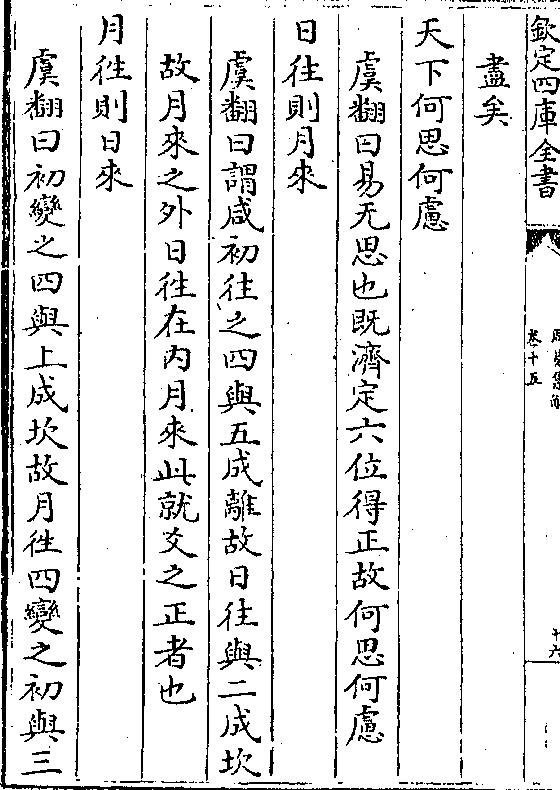 欽定四庫全書
卷十五
十六
盡矣
天下何思何慮
虞翻曰易无思也既濟定六位得正故何思何慮
日往則月來
虞翻曰謂咸初往之四與五成離故日往與二成坎
故月來之外日徃在内月來此就爻之正者也
月徃則日來
虞翻曰初變之四與上成坎故月徃四變之初與三